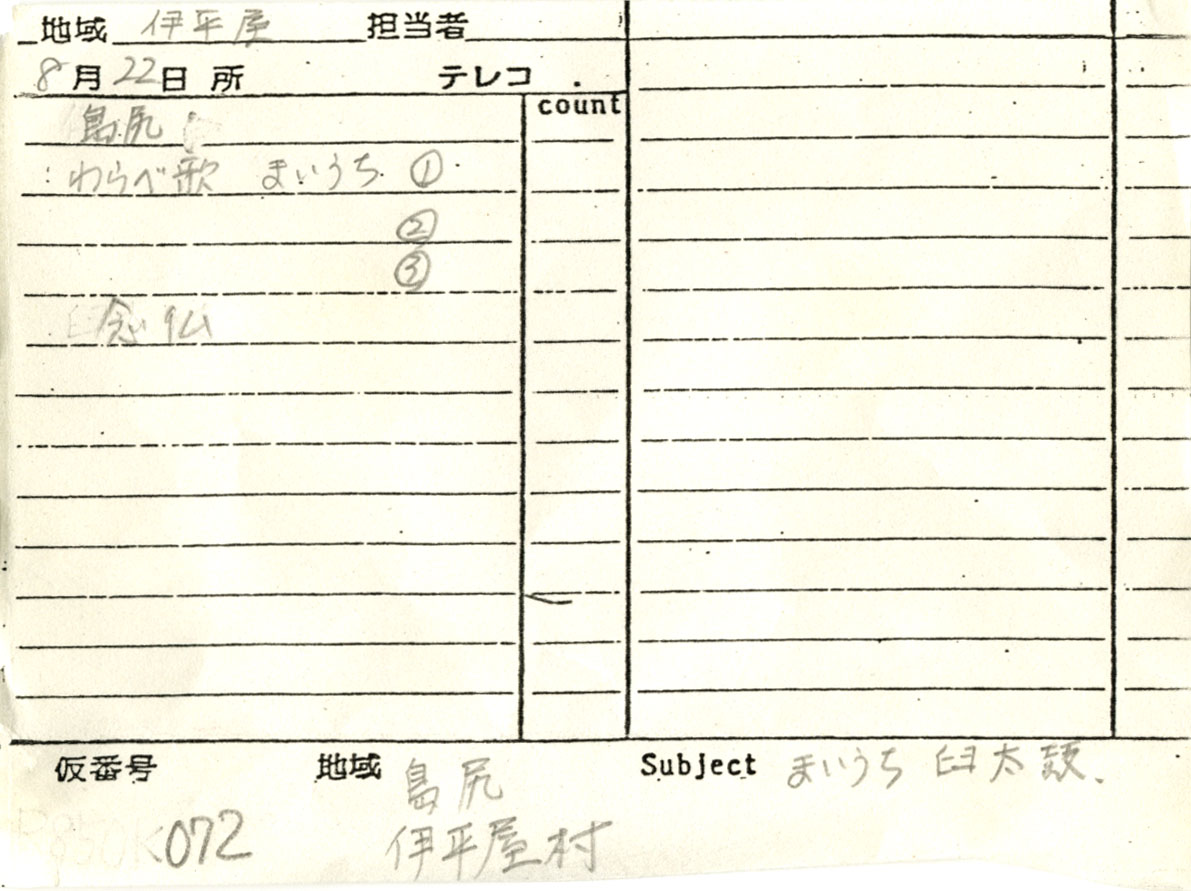 地域 伊平屋 担当者
8月22日 所 テレコ
count
島尻
わらべ歌 まいうち ①
②
③
念仏
仮番号 地域 島尻 Subject まいうち 臼太鼓
072 伊平屋村